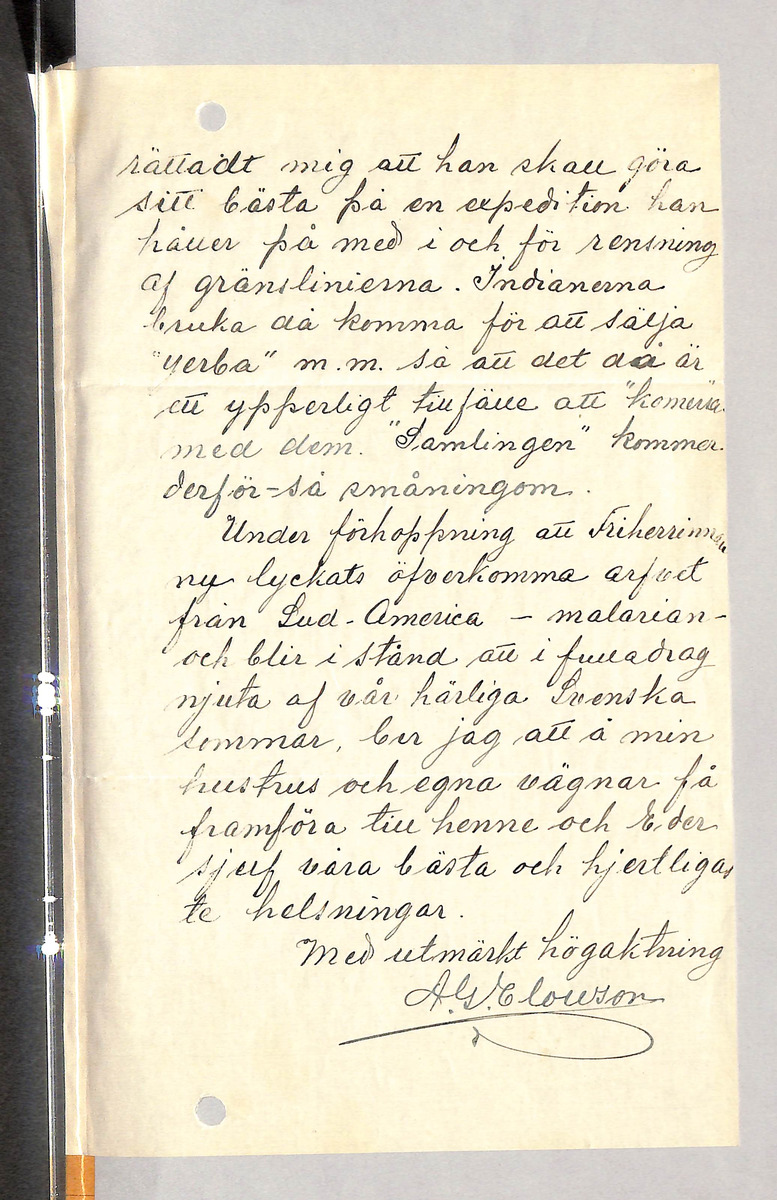 rättadt mig att han skall göra
sitt bästa på en expedition han
håller på med i och för rensning
af gränslinierna. Indianerna
bruka då komma för att sälja
"yerba" m.m. så att det då är
ett ypperligt tillfälle att
med dem. "Samlingen" kommer
derför-så småningom.
Under förhoppning att Friherrinnan
nu lyckats öfverkomma arfvet
från Sud-America – malarian –
och blir i stånd att i fulla drag
njuta af vår härliga Svenska
sommar, ber jag att å min
hustrus och egna vägnar få
framföra till henne och Eder
sjelf våra bästa och hjertligas
te helsningar.
Med utmärkt högaktning
A.G.E.